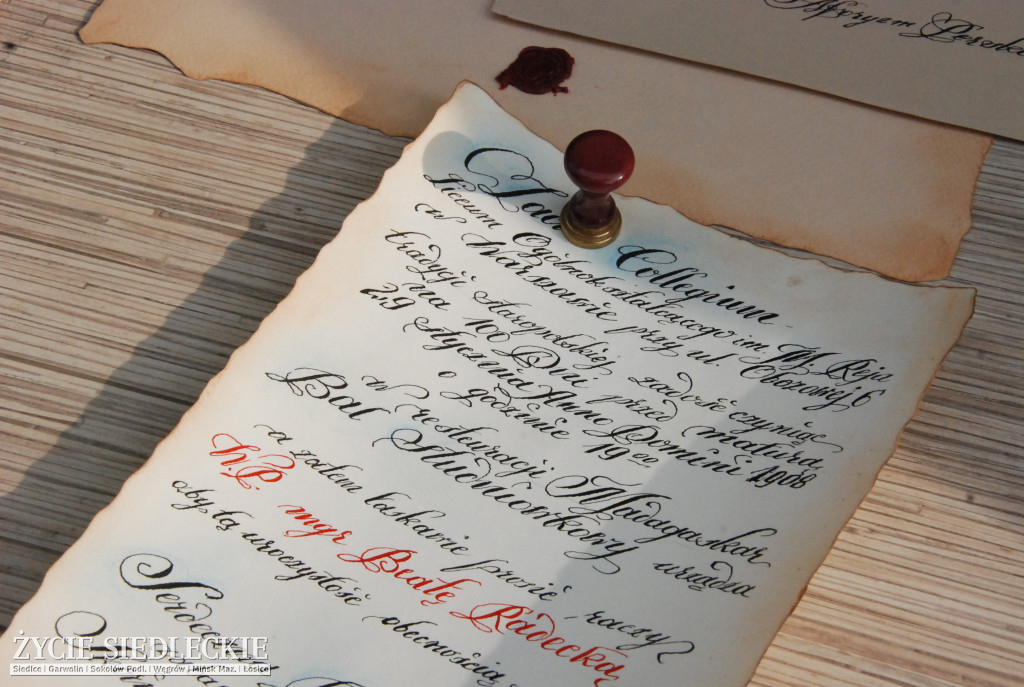 Aforyzm
Collegium
Liceum Ogólnokształcącego im. M. Reja
w Warszawie przy ul. Obozowej 6
tradycji staropolskiej zadość czyniąc
na 100 Dni przed maturą
29 stycznia Anno Domini 1908
o godzinie 19 00
w restauracji Madagaskar
Bal Studniówkowy urządza
a zatem łaskawie prosić raczy
W.P. mgr Beatę Radecką
aby tą uroczystość obecnością
ŻYCIE SIEDLECKIE
Siedlce | Garwolin | Sokołów Podl. | Węgrów | Mińsk Maz. | Łosice